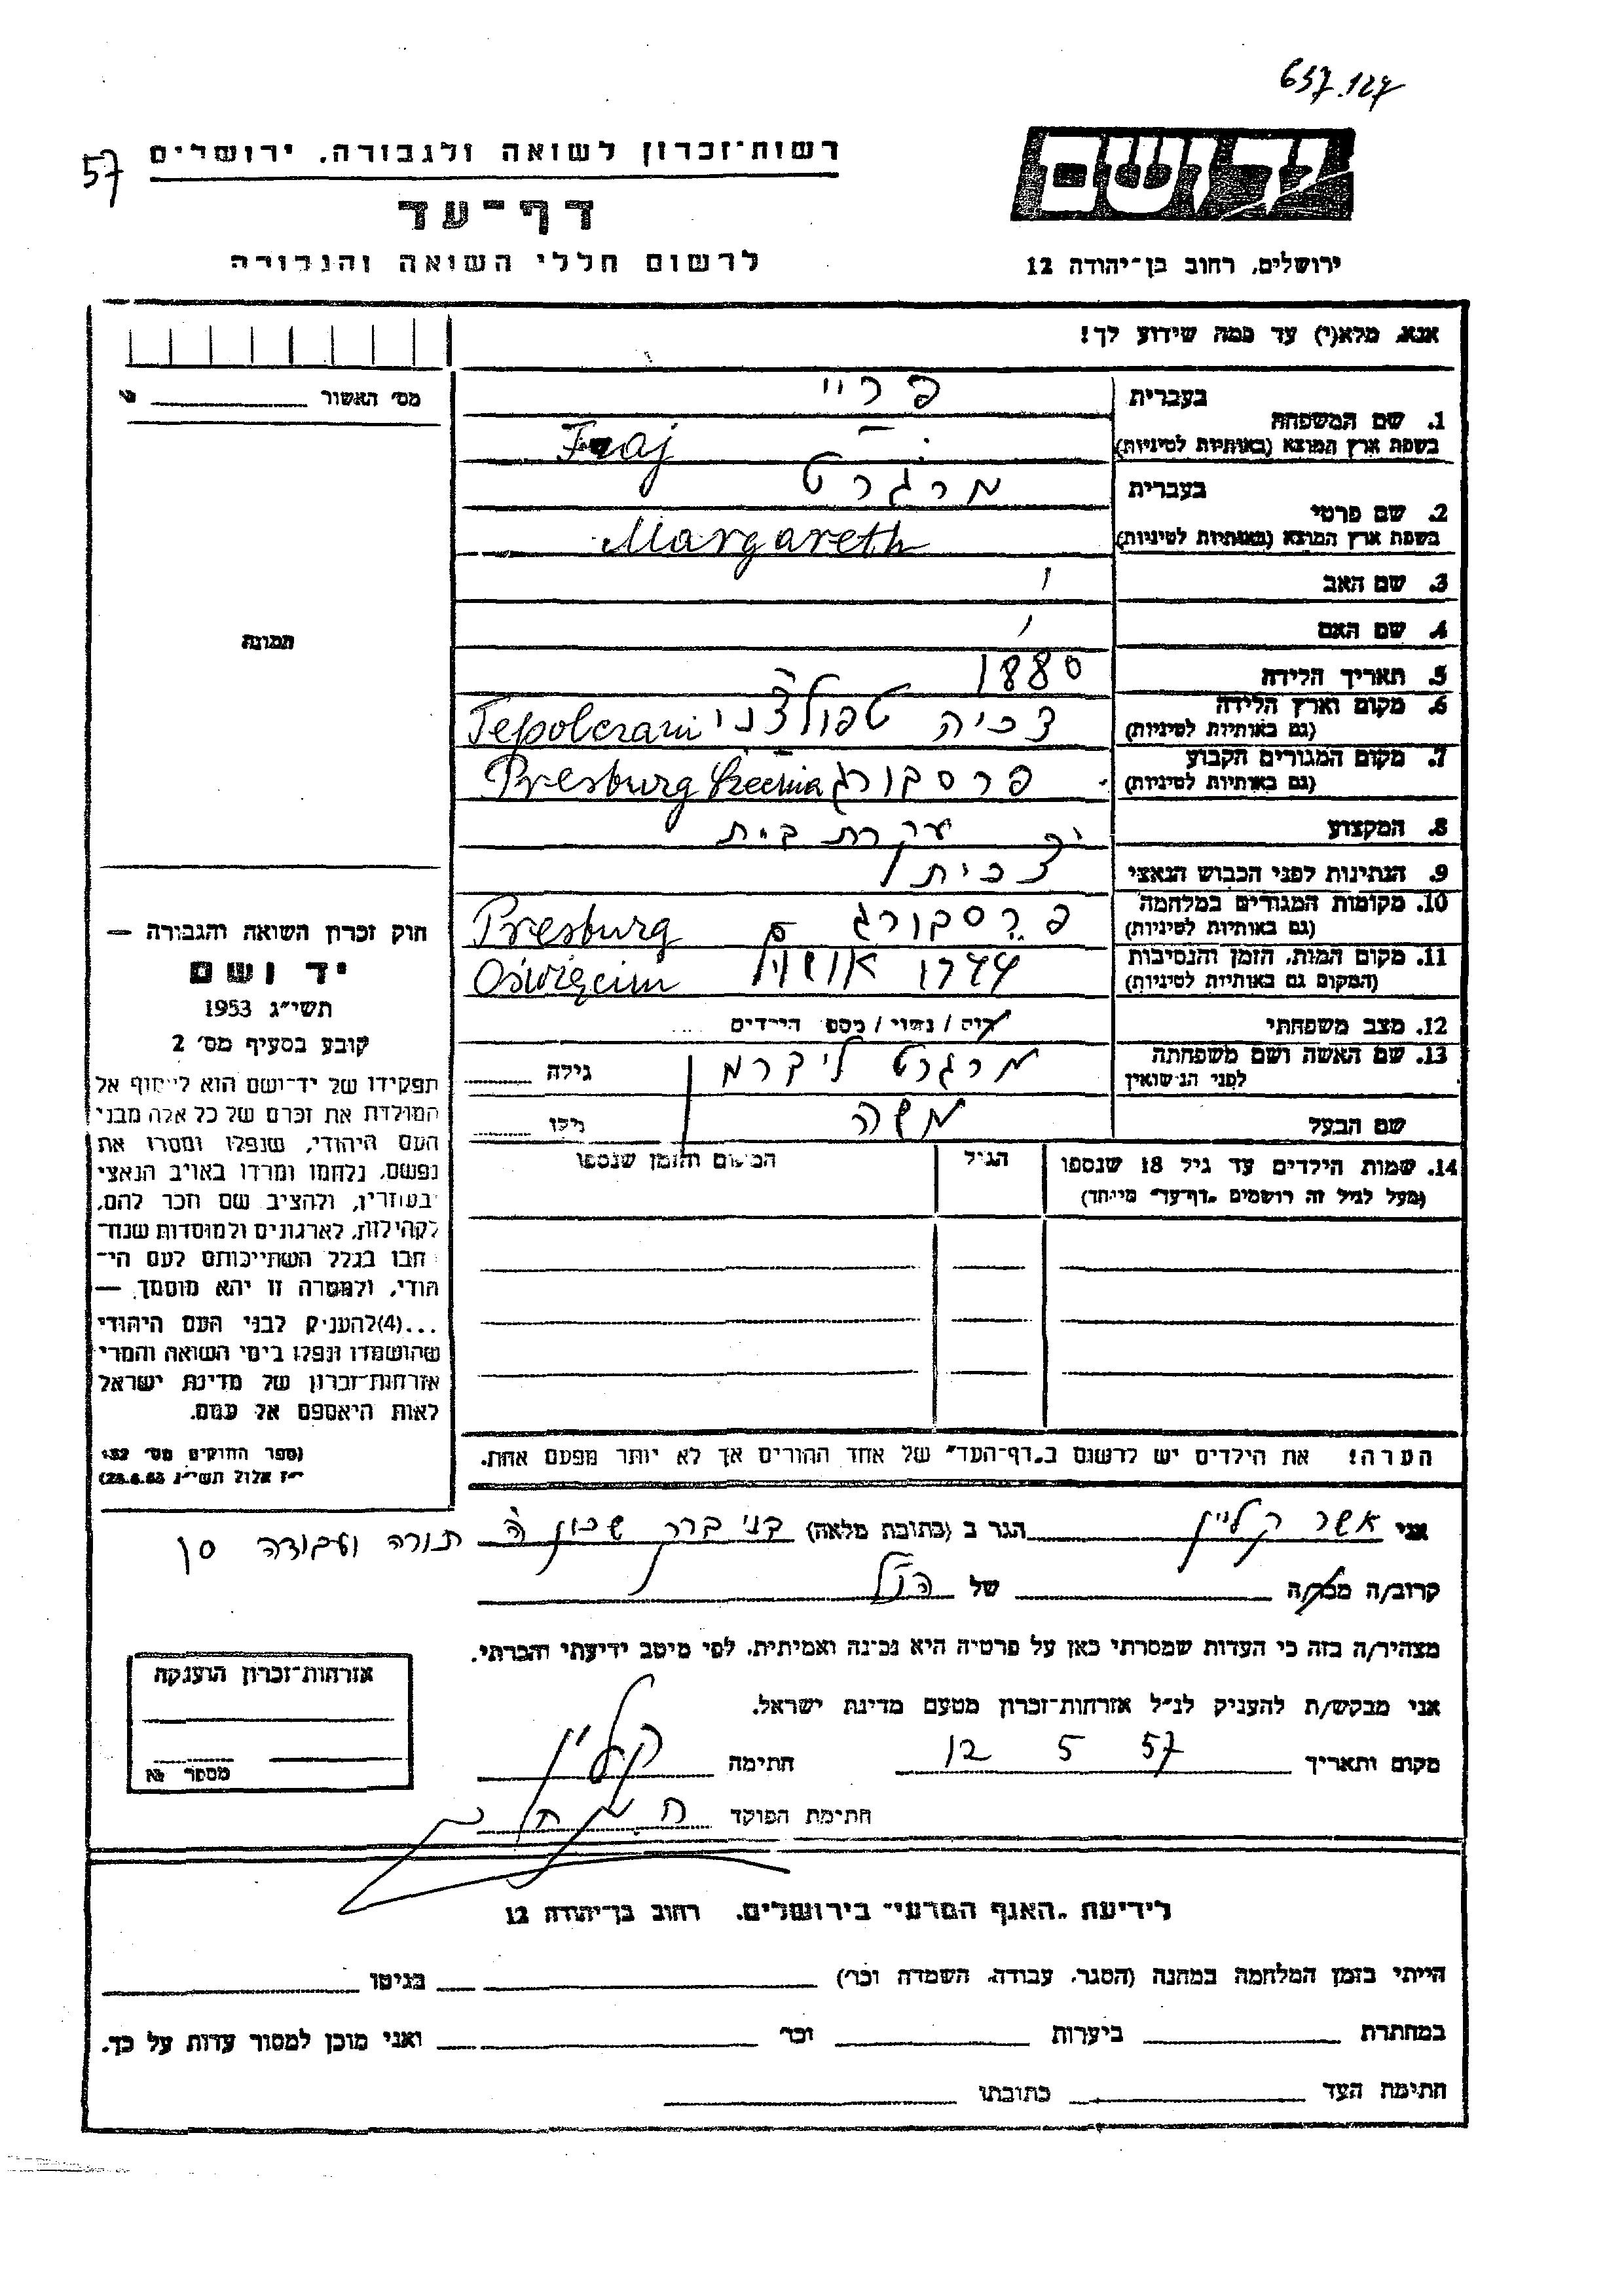 637.127
57
רשות־זכרון לשואה ולגבורה, ירושלים
יד ושם
דף־עד
לרשום חללי השואה והגבורה
ירושלים, רחוב בן־יהודה 12
אנא, מלא(י) עד כמה שידוע לך!
מס׳ האשור
1. שם המשפחה
בעברית פריי
בשפת ארץ המוצא (באותיות לטיניות) Fraj
2. שם פרטי
בעברית מרגרט
בשפת ארץ המוצא (באותיות לטיניות) Margareth
3. שם האב
4. שם האם
תמונה
5. תאריך הלידה 1880
6. מקום וארץ הלידה
(גם באותיות לטיניות) צכיה טפולצני Tepolczani
7. מקום המגורים הקבוע
(גם באותיות לטיניות) פרסבורג Presburg
8. המקצוע עקרת בית
9. הנתינות לפני הכבוש הנאצי צכית
10. מקומות המגורים במלחמה
(גם באותיות לטיניות) פרסבורג Presburg
11. מקום המות, הזמן והנסיבות
(המקום גם באותיות לטיניות) 1944 Oświęcim
12. מצב משפחתי רוק / נשוי / מספר הילדים
13. שם האשה ושם משפחתה
לפני הנישואין מרגרט ליברמ גילה
שם הבעל משה גילו
14. שמות הילדים עד גיל 18 שנספו הגיל המקום והזמן שנספו
(מעל לגיל זה רושמים „דף־עד״ מיוחד)
הערה! את הילדים יש לרשום ב„דף־העד״ של אחד ההורים אך לא יותר מפעם אחת.
חוק זכרון השואה והגבורה —
יד ושם
תשי״ג 1953
קובע בסעיף מס׳ 2
תפקידו של יד־ושם הוא לאסוף אל
המולדת את זכרם של כל אלה מבני
העם היהודי, שנפלו ומסרו את
נפשם, נלחמו ומרדו באויב הנאצי
ובעוזריו, ולהציב שם וזכר להם,
לקהילות, לארגונים ולמוסדות שנח־
רבו בגלל השתייכותם לעם הי־
הודי, ולמטרה זו יהא מוסמך. —
...(4)להעניק לבני העם היהודי
שהושמדו ונפלו בימי השואה והמרי
אזרחות־זכרון של מדינת ישראל
לאות היאספם אל עמם.
(ספר החוקים מס׳ 132
י״ז אלול תשי״ג 28.8.53)
אני אשר קליין הגר ב (כתובת מלאה) בני ברק שכון תורה ועבודה
קרוב/ה מכר/ה של הנ״ל
מצהיר/ה בזה כי העדות שמסרתי כאן על פרטיה היא נכונה ואמיתית, לפי מיטב ידיעתי והכרתי.
אני מבקש/ת להעניק לנ״ל אזרחות־זכרון מטעם מדינת ישראל.
מקום ותאריך 12 5 57 חתימה קליין
חתימת הפוקד
אזרחות־זכרון הוענקה
מספר №
לידיעת „האגף המדעי״ בירושלים, רחוב בן־יהודה 12
הייתי בזמן המלחמה במחנה (הסגר, עבודה, השמדה וכו׳) בגיטו
במחתרת ביערות וכו׳ ואני מוכן למסור עדות על כך.
חתימת העד כתובתו